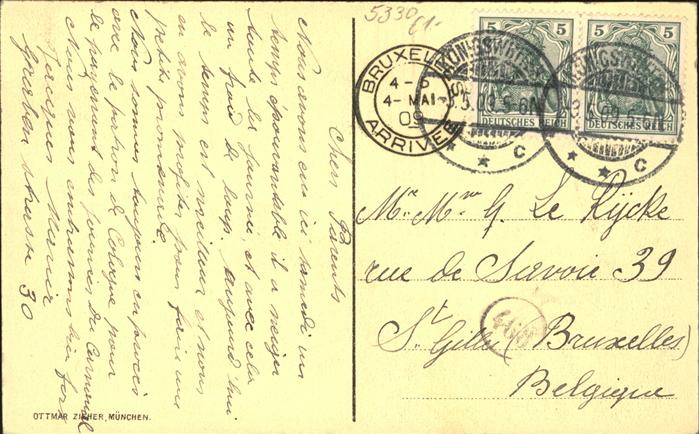 Chers Parents
Nous avons eu ici samedi un
temps épouvantable il a neigé
toute la journée, et avec cela
un froid de loup, aujourd'hui
le temps est meilleur et nous
en avons profité pour faire une
petite promenade.
Nous sommes toujours en procès
avec le patron de Cologne pour
le payement des du Carnaval
Nous nous
Jacques
Graben strasse 30
OTTMAR ZIEHER, MÜNCHEN.
5330
BRUXELLES
4-5
4-MAI
09
ARRIVEE
KÖNIGSWINTER
3.5.09.5-6N.
* * C
KÖNIGSWINTER
3.5.09.5-6N.
* * C
5 5
DEUTSCHES REICH
5 5
DEUTSCHES REICH
Mr Mme G. Le Kÿcke
rue de Savoie 39
St Gilles (Bruxelles)
Belgique